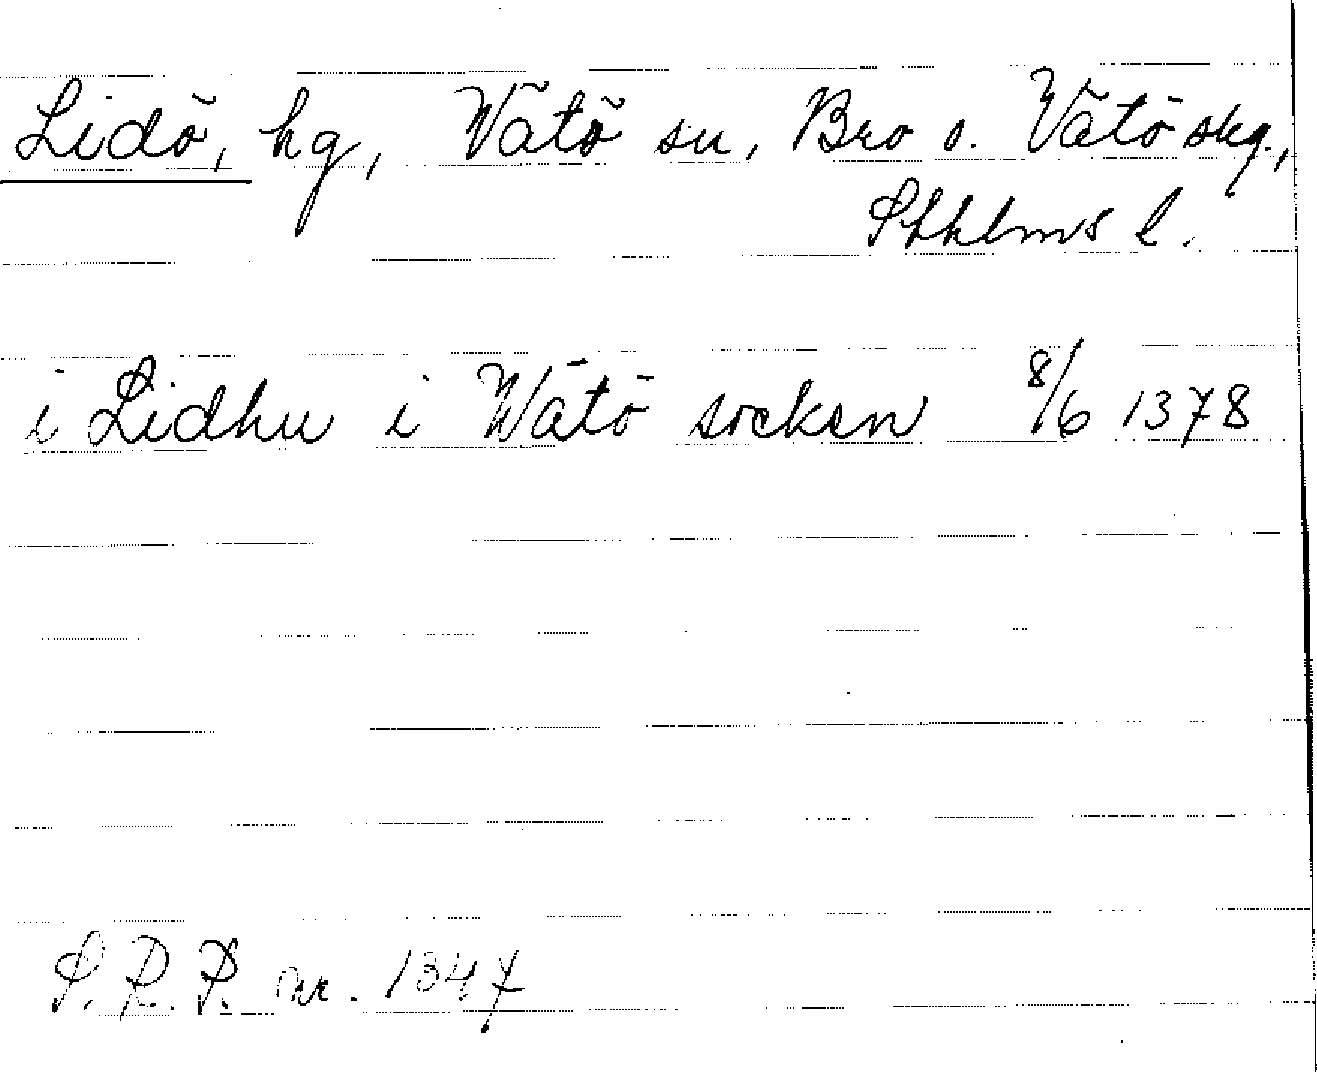 Lidö, hg, Vätö sn, Bro o. Vätö skg.,
Sthlms l.
i Lidhu i Wätö socken 8/6 1378
S. R. P. nr. 1347